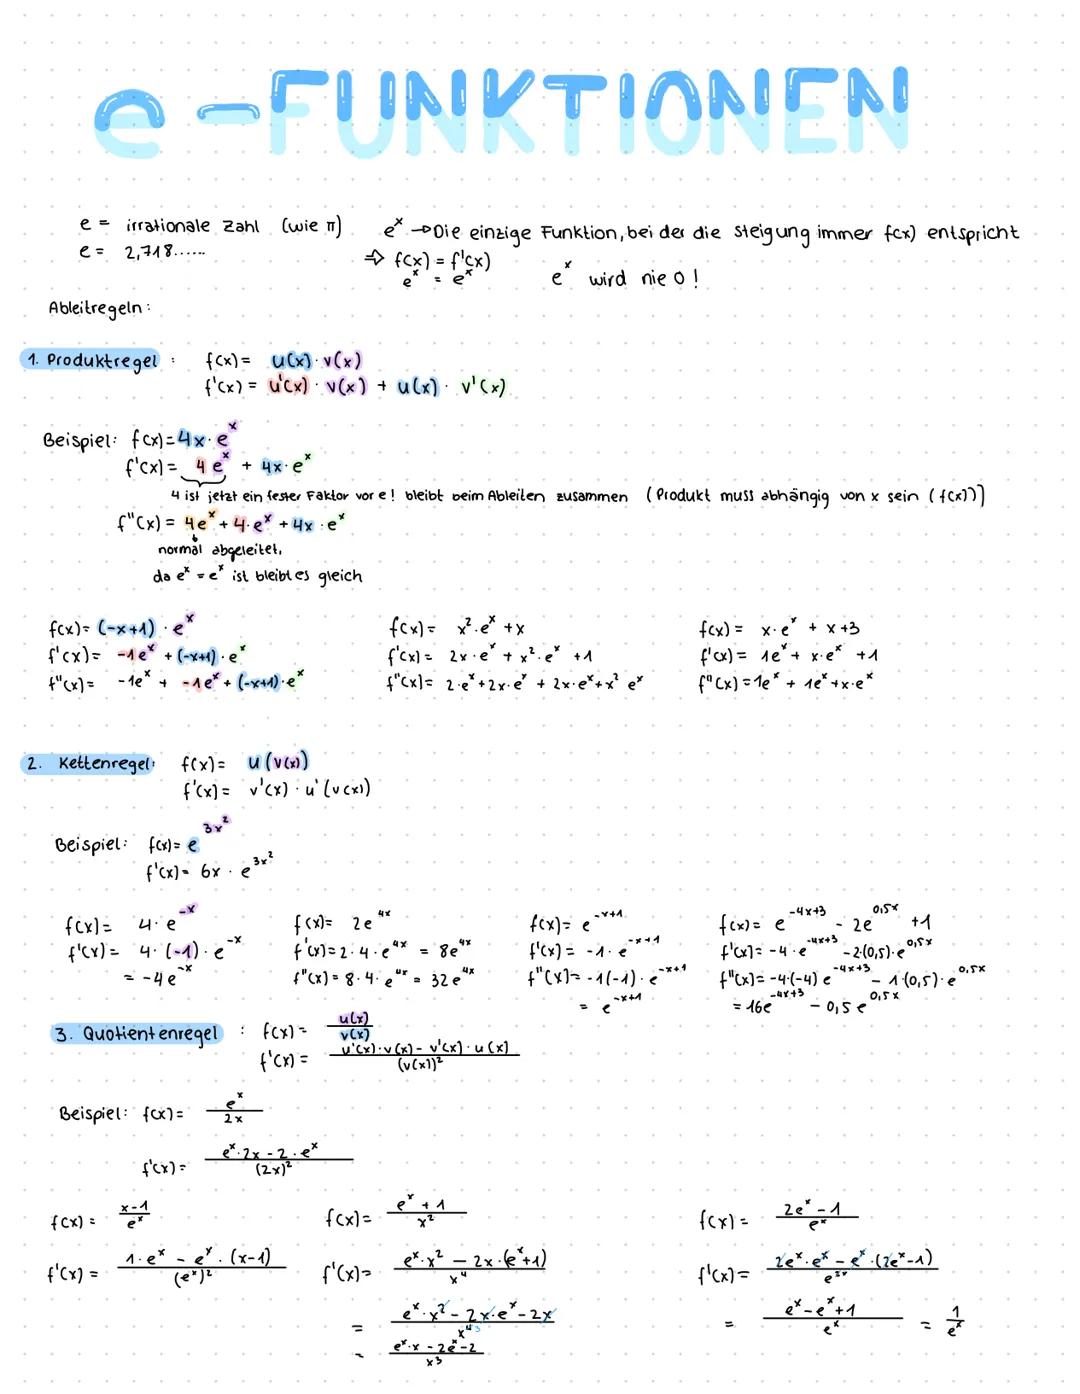 e-FUNKTIONEN
e = irrationale Zahl (wie π)
e = 2,718......
e^x → Die einzige Funktion, bei der die Steigung immer f(x) entspricht
⇒ f(x) = f'(x)
e^x = e^x
e^x wird nie 0!
Ableitregeln:
1. Produktregel : f(x) = u(x) · v(x)
f'(x) = u'(x) · v(x) + u(x) · v'(x)
Beispiel: f(x) = 4x · e^x
f'(x) = 4e^x + 4x · e^x
4 ist jetzt ein fester Faktor vor e! bleibt beim Ableiten zusammen (Produkt muss abhängig von x sein (f(x)))
f''(x) = 4e^x + 4 · e^x + 4x · e^x
normal abgeleitet,
da e^x = e^x ist bleibt es gleich
f(x) = (-x+1) · e^x
f'(x) = -1e^x + (-x+1) · e^x
f''(x) = -1e^x + -1e^x + (-x+1) · e^x
f(x) = x² · e^x + x
f'(x) = 2x · e^x + x² · e^x + 1
f''(x) = 2 · e^x + 2x · e^x + 2x · e^x + x² e^x
f(x) = x · e^x + x + 3
f'(x) = 1e^x + x · e^x + 1
f''(x) = 1e^x + 1e^x + x · e^x
2. Kettenregel: f(x) = u(v(x))
f'(x) = v'(x) · u'(v(x))
Beispiel: f(x) = e^3x²
f'(x) = 6x · e^3x²
f(x) = 4 · e^-x
f'(x) = 4 · (-1) · e^-x
= -4e^-x
f(x) = 2e^4x
f'(x) = 2 · 4 · e^4x = 8e^4x
f''(x) = 8 · 4 · e^4x = 32e^4x
f(x) = e^-x+1
f'(x) = -1 · e^-x+1
f''(x) = -1(-1) · e^-x+1
= e^-x+1
f(x) = e^-4x+3 - 2e^0,5x + 1
f'(x) = -4 · e^-4x+3 - 2·(0,5) · e^0,5x
f''(x) = -4·(-4) e^-4x+3 - 1·(0,5) · e^0,5x
= 16e^-4x+3 - 0,5e^0,5x
3. Quotientenregel : f(x) = u(x) / v(x)
f'(x) = u'(x) · v(x) - v'(x) · u(x) / (v(x))²
Beispiel: f(x) = e^x / 2x
f'(x) = e^x · 2x - 2 · e^x / (2x)²
f(x) = x-1 / e^x
f'(x) = 1 · e^x - e^x · (x-1) / (e^x)²
f(x) = e^x + 1 / x²
f'(x) = e^x · x² - 2x · (e^x+1) / x⁴
= e^x · x² - 2x · e^x - 2x / x⁴ ³
= e^x · x - 2e^x - 2 / x³
f(x) = 2e^x - 1 / e^x
f'(x) = 2e^x · e^x - e^x · (2e^x-1) / e^2x
= e^x - e^x + 1 / e^x = 1 / e^x